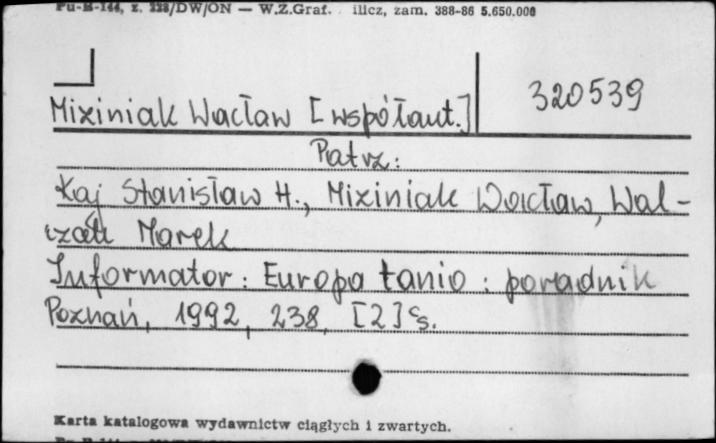 Pu-B-144, z. 228/DW/ON — W.Z.Graf. ilicz, zam. 388-86 5.650.000
Mixiniak Wacław [współaut.] 320539
Patrz:
Kaj Stanisław H., Mixiniak Wacław, Wal-
czak Marek
Informator: Europa tanio : poradnik
Poznań, 1992, 238, [2] s.
Karta katalogowa wydawnictw ciągłych i zwartych.